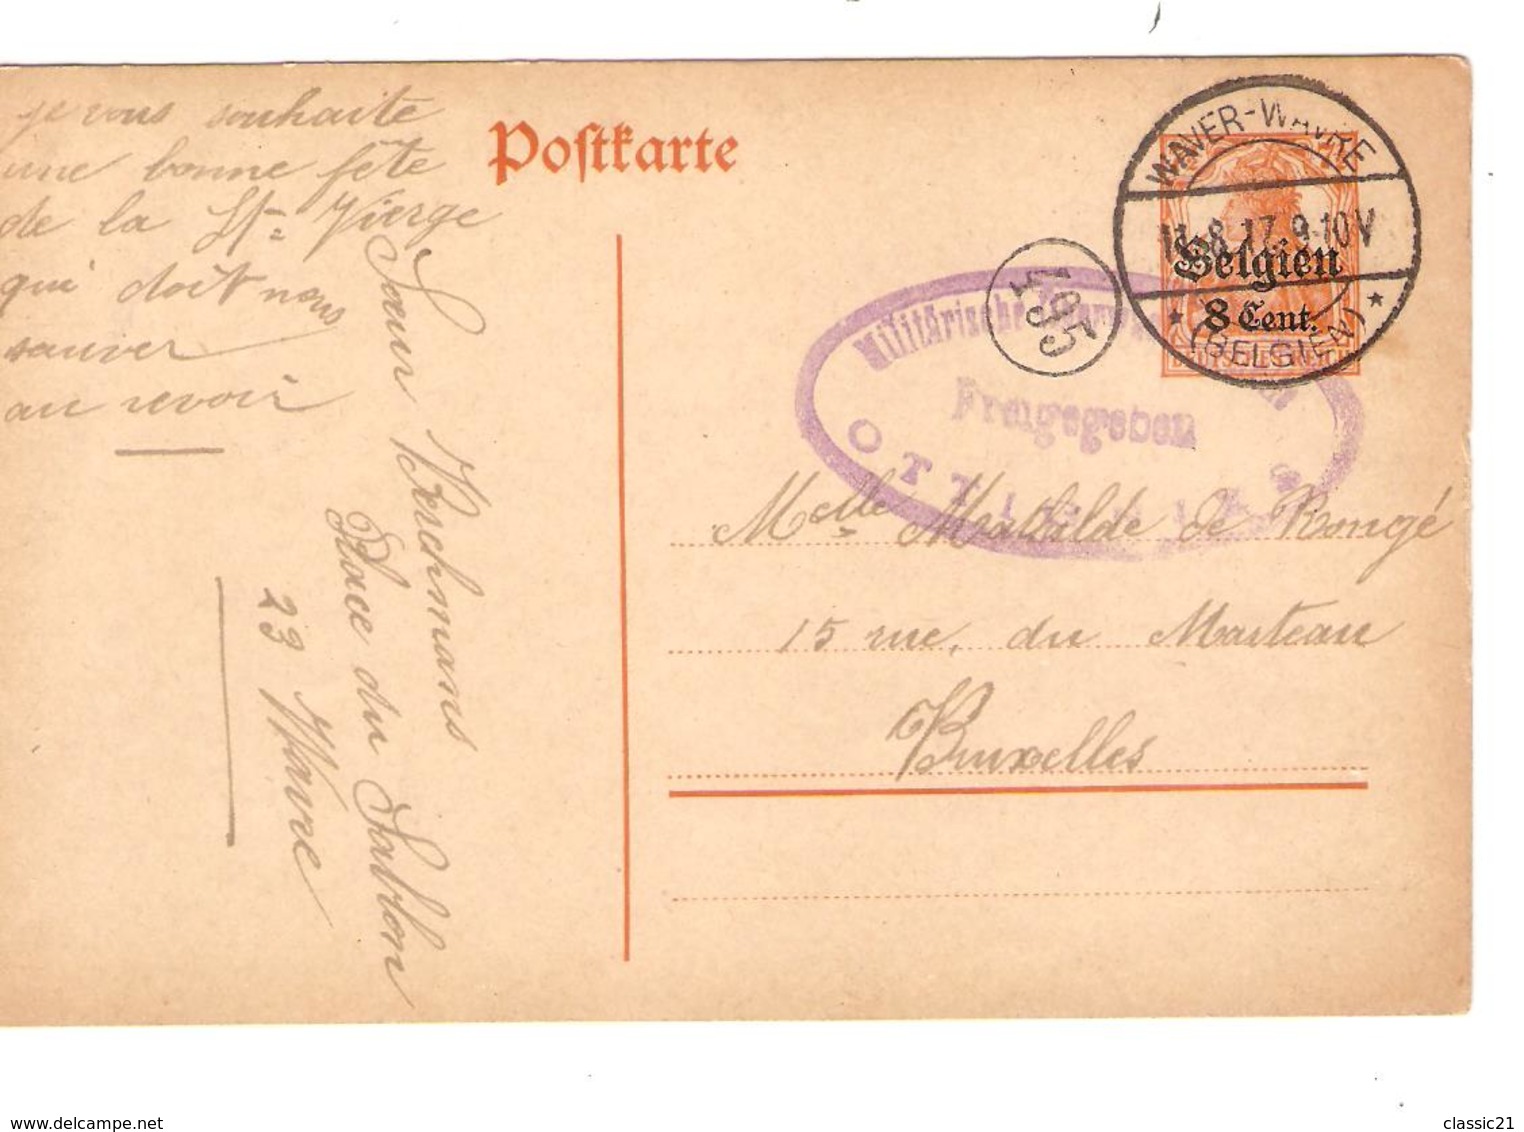 je vous souhaite
une bonne fête
de la Ste Vierge
qui doit nous
sauver
au revoir
Soeur Berchmans
Place du Sablon
23 Wavre
Postkarte
WAVER-WAVRE
11.8.17.9-10V
(BELGIEN)
Belgien
8 Cent.
195
Militärische
Freigegeben
Melle Mathilde de Rongé
15 rue, du Marteau
Bruxelles
www.delcampe.net
classic21